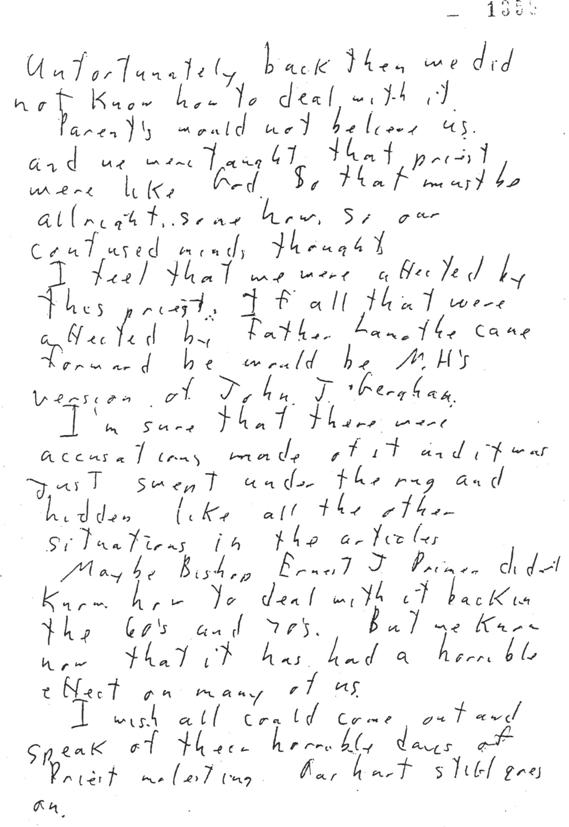 Unfortunately back then we did
not know how to deal with it.
Parent's would not believe us.
and we were taught that priest
were like God. So that must be
allright..some how, so our
confused minds thought
I feel that we were affected by
this priest. If all that were
affected by Father came
forward he would be N.H's
version of John J. Geoghan.
I'm sure that there were
accusations made of it and it was
just swept under the rug and
hidden like all the other
situations in the articles
Maybe Bishop Ernest J Primeau didn't
know how to deal with it back in
the 60's and 70's. But we know
now that it has had a horrible
effect on many of us.
I wish all could come out and
speak of their horrible days of
Priest molesting. Our hurt still goes
on.